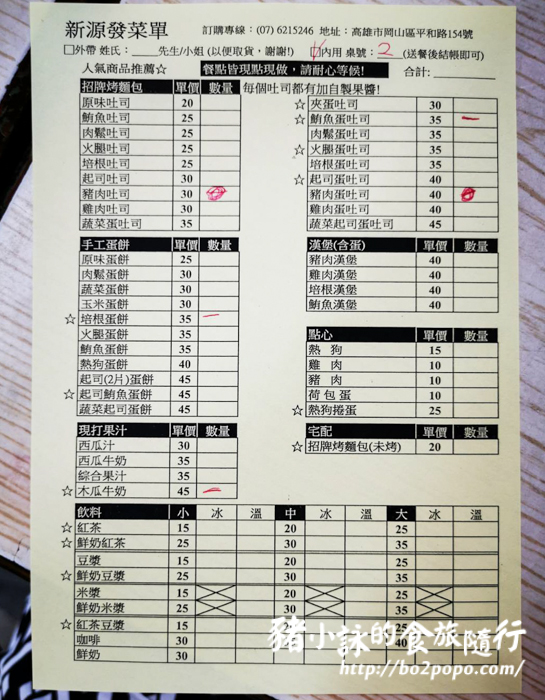 新源發菜單
訂購專線：(07) 6215246 地址：高雄市岡山區平和路154號
□外帶 姓氏：_____先生/小姐 (以便取貨，謝謝!) □內用 桌號：2 (送餐後結帳即可)
人氣商品推薦☆ 餐點皆現點現做，請耐心等候! 合計：________
招牌烤麵包 單價 數量 每個吐司都有加自製果醬!
原味吐司 20
鮪魚吐司 25
肉鬆吐司 25
火腿吐司 25
培根吐司 25
起司吐司 30
豬肉吐司 30
雞肉吐司 30
蔬菜蛋吐司 35
☆ 夾蛋吐司 30
☆ 鮪魚蛋吐司 35 一
肉鬆蛋吐司 35
☆ 火腿蛋吐司 35
培根蛋吐司 35
☆ 起司蛋吐司 40
豬肉蛋吐司 40
雞肉蛋吐司 40
蔬菜起司蛋吐司 45
手工蛋餅 單價 數量
原味蛋餅 25
肉鬆蛋餅 30
蔬菜蛋餅 30
玉米蛋餅 30
☆ 培根蛋餅 35 一
火腿蛋餅 35
鮪魚蛋餅 35
熱狗蛋餅 40
起司(2片)蛋餅 45
☆ 起司鮪魚蛋餅 45
蔬菜起司蛋餅 45
漢堡(含蛋) 單價 數量
豬肉漢堡 40
雞肉漢堡 40
培根漢堡 40
鮪魚漢堡 40
點心 單價 數量
熱 狗 15
雞 肉 10
豬 肉 10
荷包蛋 10
☆ 熱狗捲蛋 25
現打果汁 單價 數量
西瓜汁 30
西瓜牛奶 35
綜合果汁 35
☆ 木瓜牛奶 45 一
宅配 單價 數量
☆ 招牌烤麵包(未烤) 20
飲料 小 冰 溫 中 冰 溫 大 冰 溫
☆ 紅茶 15 20 25
☆ 鮮奶紅茶 25 30 35
豆漿 15 20 25
☆ 鮮奶豆漿 25 30 35
米漿 15 20 25
鮮奶米漿 25 30 35
☆ 紅茶豆漿 15 20 25
咖啡 30 40
鮮奶 30
豬小詠的食旅隨行
http://bo2popo.com/